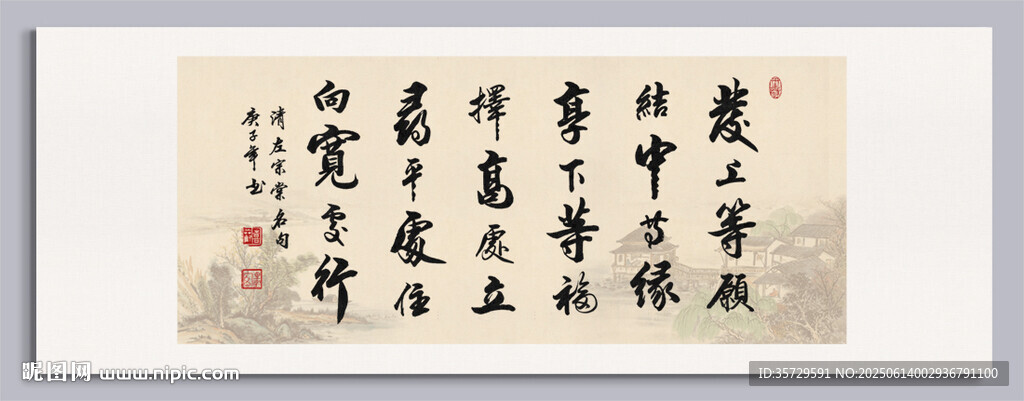 發上等願
結中等緣
享下等福
擇高處立
尋平處住
向寬處行
清左宗棠名句
庚子年書
昵图网 www.nipic.com
ID:35729591 NO:20250614002936791100